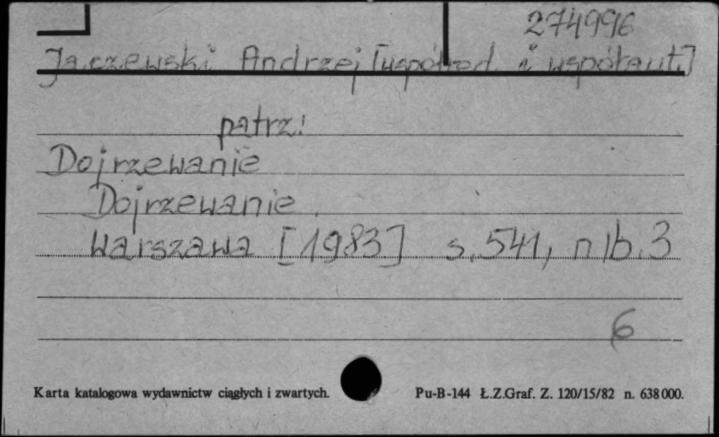 274996
Jaczewski Andrzej [współred. i współaut.]
patrz:
Dojrzewanie
Dojrzewanie.
Warszawa [1983] s. 541, nlb. 3
6
Karta katalogowa wydawnictw ciągłych i zwartych. Pu-B-144 Ł.Z.Graf. Z. 120/15/82 n. 638000.